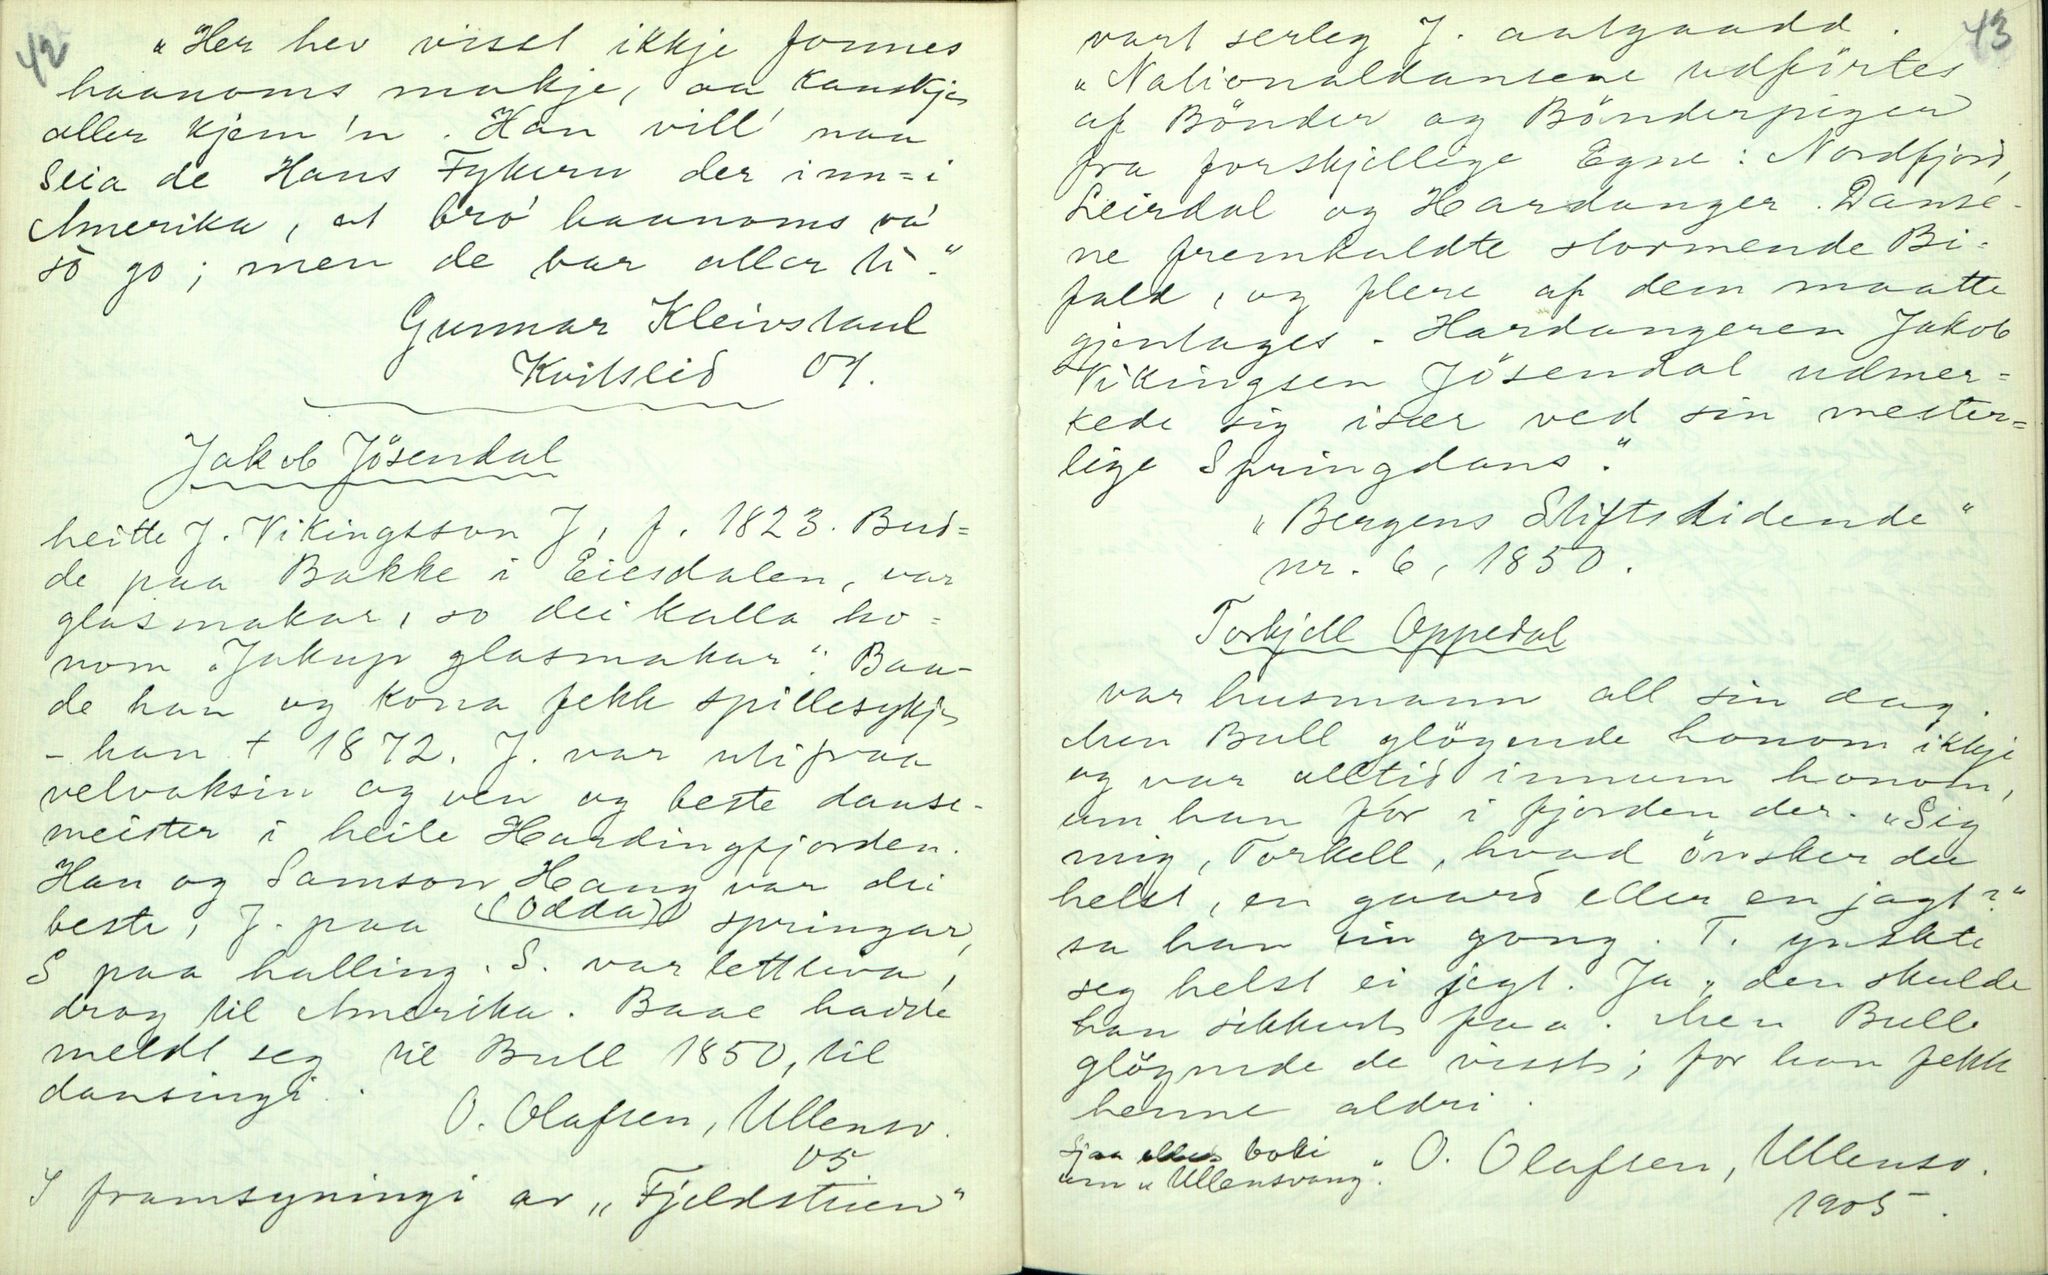 42
"Her hev visst ikkje fonnes
haanoms makje, aa kanskje
aller kjem 'n. Han vill' naa
seia de Hans Fykeru der inn=i
Amerika, at bro' haanoms va'
so go; men de bar aller ti."
Gunnar Kleivstaul
Kvitseid 07.
Jakob Jösendal
heitte J. Vikingsson J, f. 1823. Bud=
de paa Bakke i Eiesdalen, var
glasmakar, so dei kalla ho=
nom "Jakup glasmakar". Baa-
de han og kona fekk spillesykje
- han † 1872. J. var utifraa
velvaksin og ven og beste danse-
meister i heile Hardingfjorden.
Han og Samson Haug var dei
(Odda)
beste, J. paa springar,
S paa halling. S. var lettliva,
drog til Amerika. Baae hadde
meldt seg til Bull 1850, til
dansingi.
O. Olafsen, Ullensv.
05.
I framsyningi av "Fjeldstuen"
43
vart serleg J. aatgaadd.
"Nationaldansene udförtes
af Bönder og Bönderpiger
fra forskjellige Egne: Nordfjord,
Leirdal og Hardanger. Danse-
ne fremkaldte stormende Bi-
fald, og flere af dem maatte
gjentages. Hardangeren Jakob
Vikingsen Jösendal udmer=
kede sig især ved sin mester=
lige Springdans."
"Bergens Stiftstidende"
nr. 6, 1850.
Torkjell Oppedal
var husmann all sin dag.
Men Bull glöymde honom ikkje
og var alltid innum honom,
um han for i fjorden der. "Sig
mig, Torkell, hvad önsker du
helst, en gaard eller en jagt?"
sa han ein gong. T. ynskte
seg helst ei jegt. Ja, den skulde
han sikkert faa. Men Bull
glöymde de visst; for han fekk
henne aldri.
Sjaa elles boki
um "Ullensvang". O. Olafsen, Ullensv.
1905.